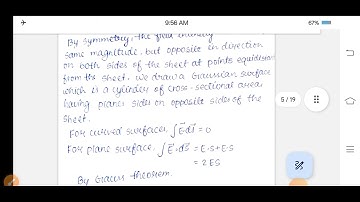 9:56 AM
67%
By symmetry, the field intensity
same magnitude, but opposite in direction
on both sides of the sheet at points equidistant
from the sheet. We draw a Gaussian surface
which is a cylinder of cross-sectional area
having planes sides on opposite sides of the
sheet.
For curved surfaces, ∫E⃗.ds⃗ = 0
For plane surface, ∫E⃗.ds⃗ = E.S+E.S
= 2ES
By Gauss theorem.
5 / 19